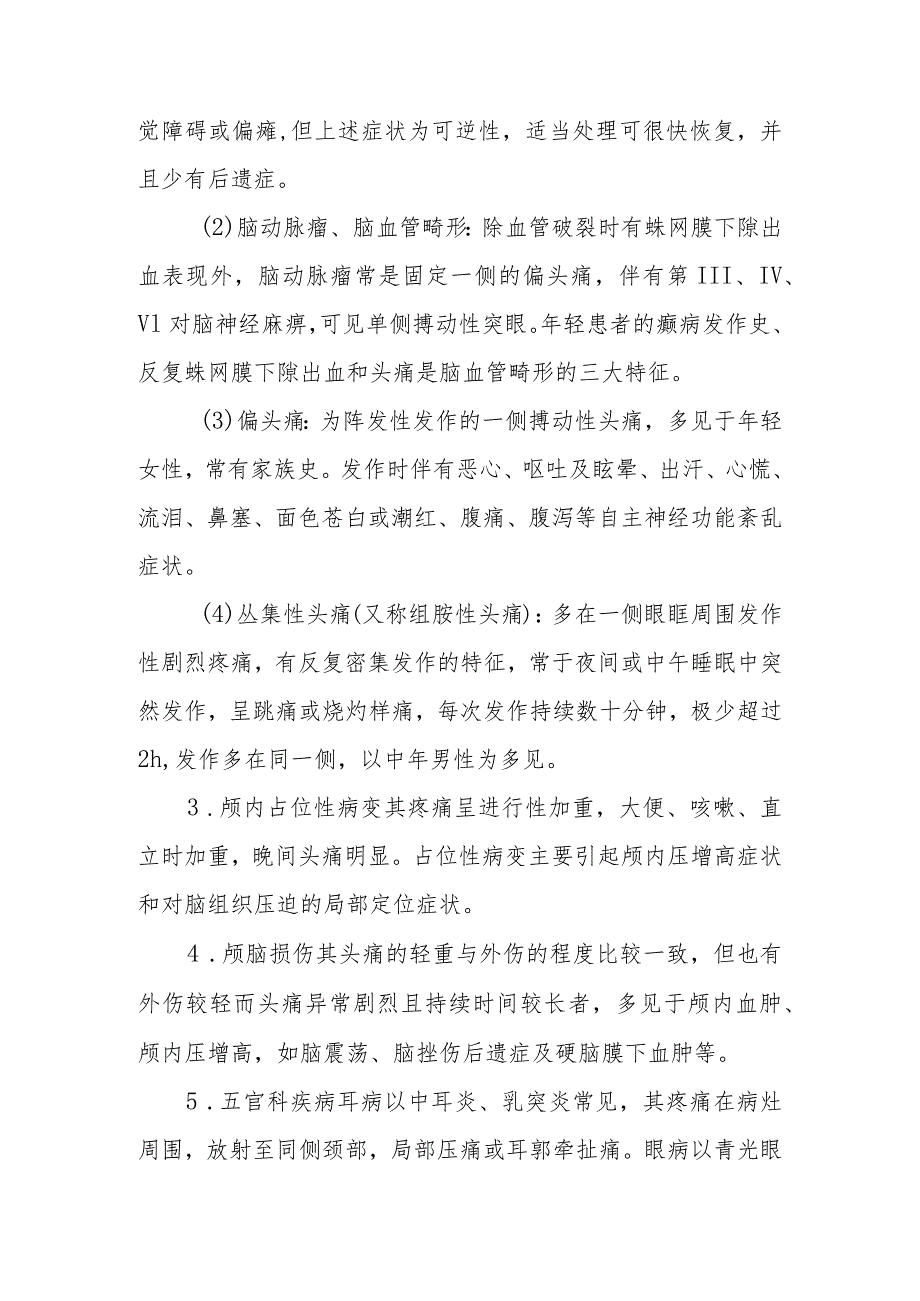 觉障碍或偏瘫,但上述症状为可逆性，适当处理可很快恢复，并
且少有后遗症。
(2)脑动脉瘤、脑血管畸形：除血管破裂时有蛛网膜下隙出
血表现外，脑动脉瘤常是固定一侧的偏头痛，伴有第III、IV、
Vl对脑神经麻痹,可见单侧搏动性突眼。年轻患者的癫痫发作史、
反复蛛网膜下隙出血和头痛是脑血管畸形的三大特征。
(3)偏头痛：为阵发性发作的一侧搏动性头痛，多见于年轻
女性，常有家族史。发作时伴有恶心、呕吐及眩晕、出汗、心慌、
流泪、鼻塞、面色苍白或潮红、腹痛、腹泻等自主神经功能紊乱
症状。
(4)丛集性头痛(又称组胺性头痛)：多在一侧眼眶周围发作
性剧烈疼痛，有反复密集发作的特征，常于夜间或中午睡眠中突
然发作，呈跳痛或烧灼样痛，每次发作持续数十分钟，极少超过
2h,发作多在同一侧，以中年男性为多见。
3.颅内占位性病变其疼痛呈进行性加重，大便、咳嗽、直
立时加重，晚间头痛明显。占位性病变主要引起颅内压增高症状
和对脑组织压迫的局部定位症状。
4.颅脑损伤其头痛的轻重与外伤的程度比较一致，但也有
外伤较轻而头痛异常剧烈且持续时间较长者，多见于颅内血肿、
颅内压增高，如脑震荡、脑挫伤后遗症及硬脑膜下血肿等。
5.五官科疾病耳病以中耳炎、乳突炎常见，其疼痛在病灶
周围，放射至同侧颈部，局部压痛或耳郭牵扯痛。眼病以青光眼